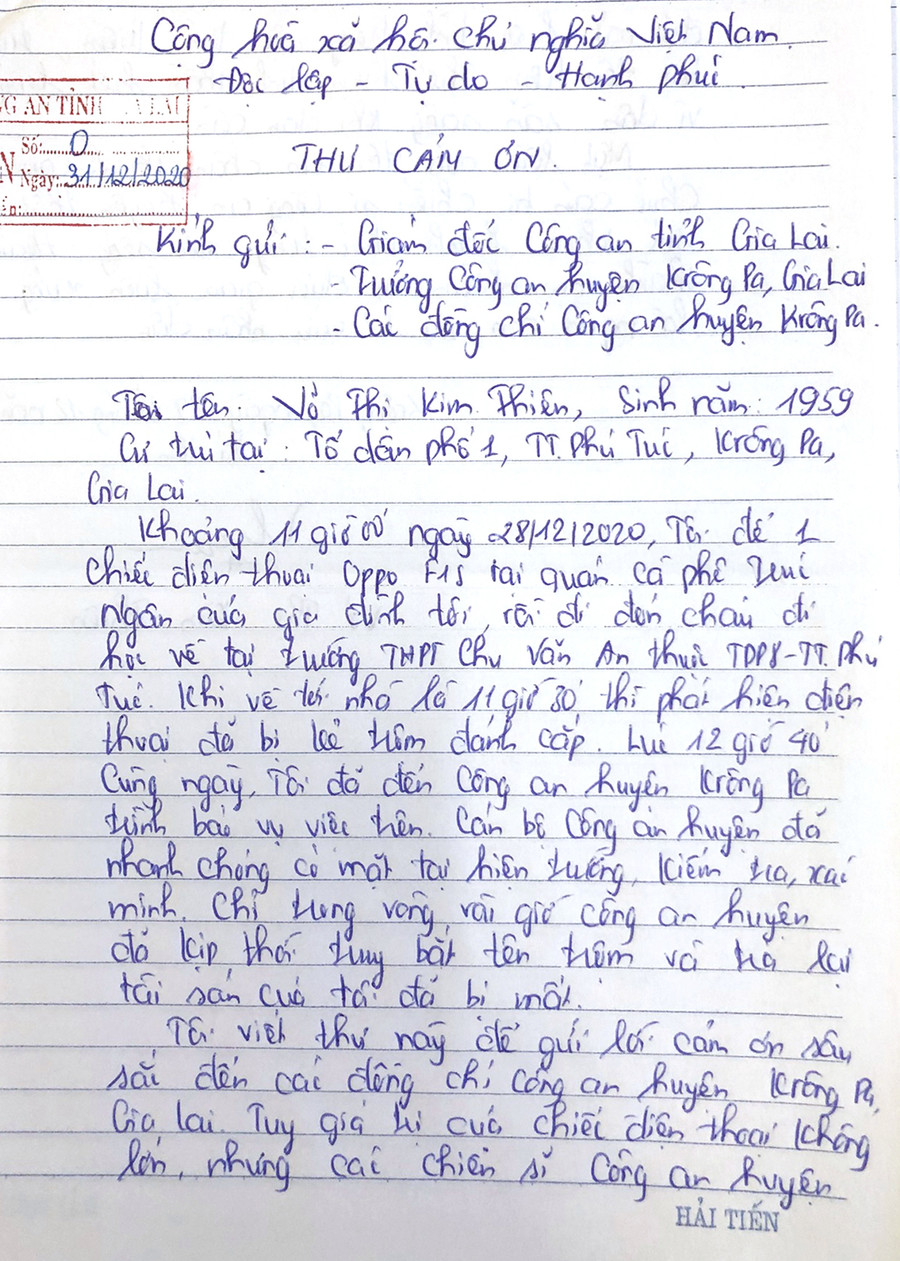 Cộng hoà xã hội chủ nghĩa Việt Nam.
Độc lập - Tự do - Hạnh phúc
NG AN TỈNH A LAI
Số: 0
N Ngày: 31/12/2020
THƯ CẢM ƠN.
Kính gửi: - Giám đốc Công an tỉnh Gia Lai.
- Trưởng Công an huyện Krông Pa, Gia Lai
- Các đồng chí Công an huyện Krông Pa.
Tôi tên: Võ Thị Kim Thiên, Sinh năm: 1959
Cư trú tại: Tổ dân phố 1, TT. Phú Túc, Krông Pa,
Gia Lai.
Khoảng 11 giờ 00' ngày 28/12/2020, Tôi để 1
chiếc điện thoại Oppo F1S tại quán cà phê Trúc
Ngân của gia đình tôi, rồi đi đón cháu đi
học về tại trường THPT Chu Văn An thuộc TDP8-TT. Phú
Túc. Khi về tới nhà là 11 giờ 30' thì phát hiện điện
thoại đã bị kẻ trộm đánh cắp. Lúc 12 giờ 40'
Cùng ngày, Tôi đã đến Công an huyện Krông Pa
trình báo vụ việc trên. Cán bộ Công an huyện đã
nhanh chóng có mặt tại hiện trường, Kiểm tra, xác
minh. Chỉ trong vòng vài giờ công an huyện
đã kịp thời truy bắt tên trộm và trả lại
tài sản của tôi đã bị mất.
Tôi viết thư này để gửi lời cảm ơn sâu
sắc đến các đồng chí công an huyện Krông Pa,
Gia Lai. Tuy giá trị của chiếc điện thoại không
lớn, nhưng các chiến sĩ Công an huyện
HẢI TIẾN